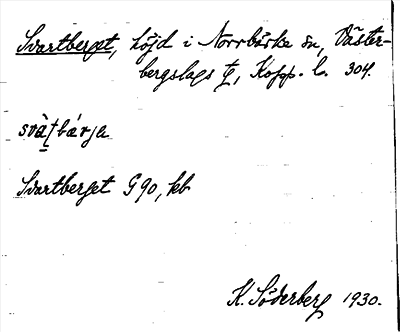 Svartberget, höjd i Norrbärke sn, Väster-
bergslags tg, Kopp. l. 304.
svàṭbárja
Svartberget G 90, kb
K. Söderberg 1930.